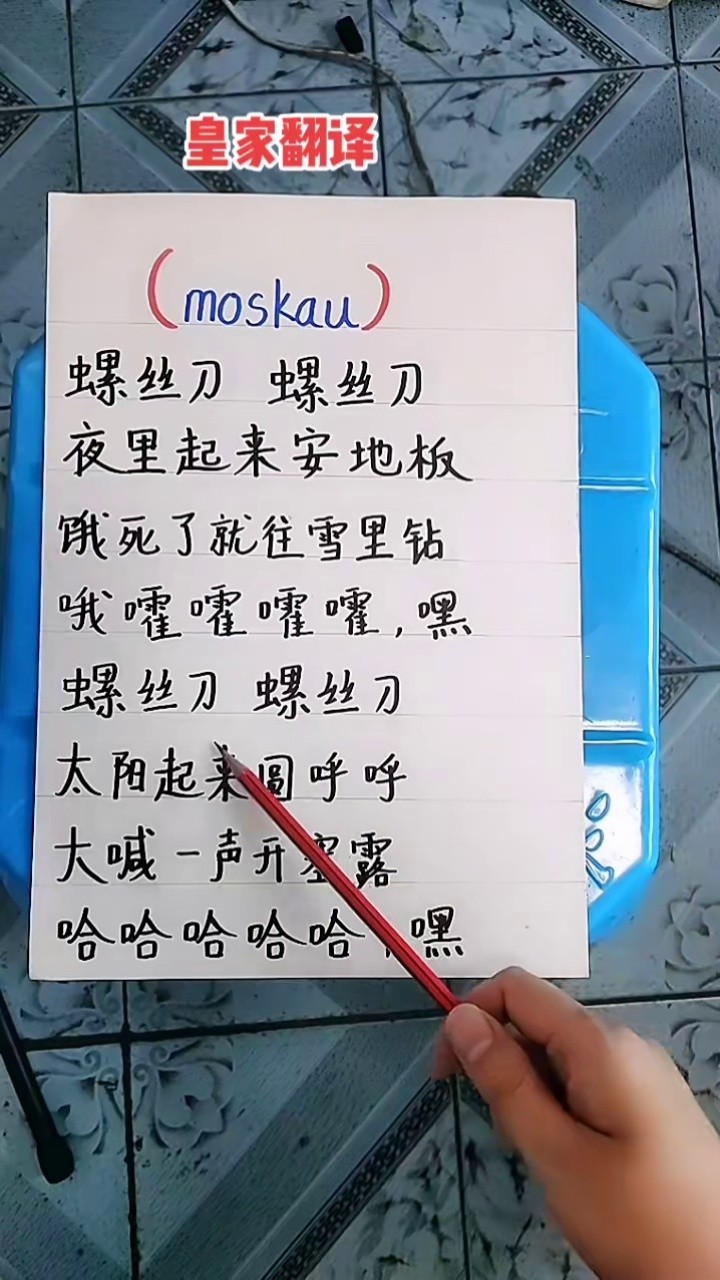 皇家翻译
(moskau)
螺丝刀 螺丝刀
夜里起来安地板
饿死了就往雪里钻
哦嚯嚯嚯嚯,嘿
螺丝刀 螺丝刀
太阳起来圆呼呼
大喊一声开露
哈哈哈哈哈,嘿